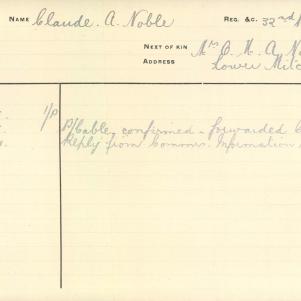 NAME Claude. A. Noble REG. &C. 32nd
NEXT OF KIN Mrs
ADDRESS Lower
1/P P/Cable, confirmed - forwarded
Reply from Commr. Information